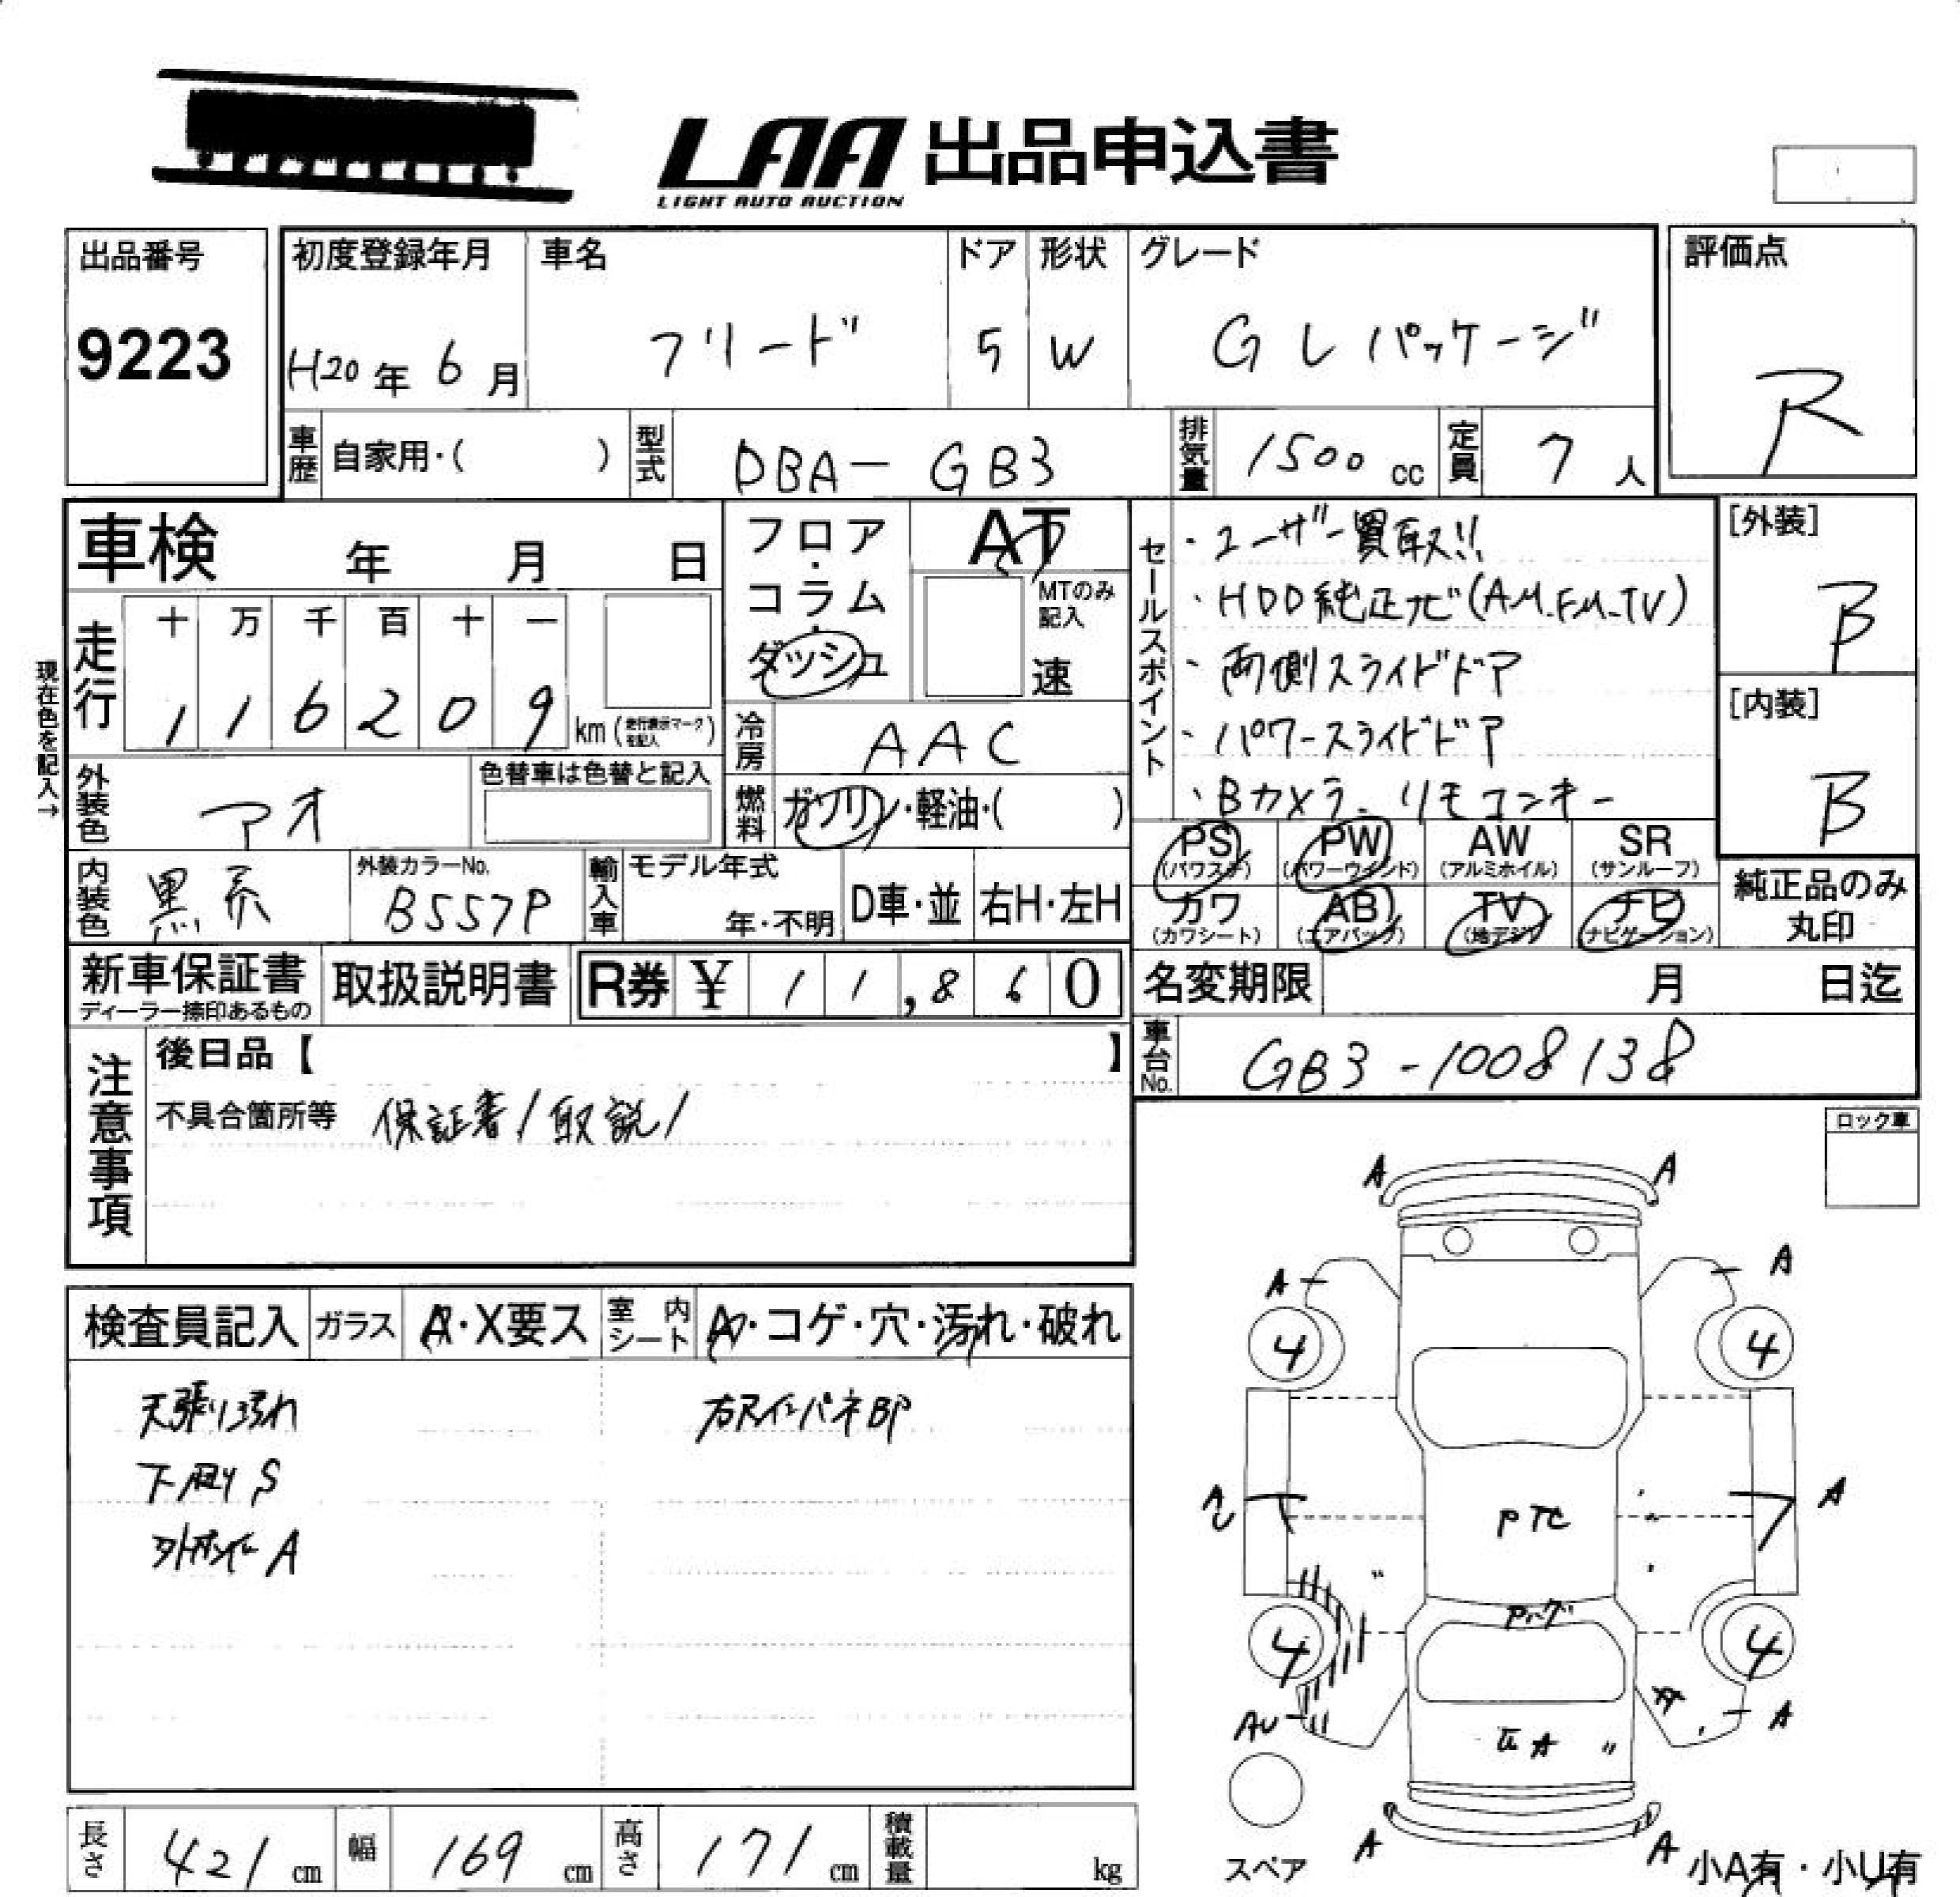 LAA 出品申込書
LIGHT AUTO AUCTION
出品番号
9223
初度登録年月
H20年 6月
車名
フリード
ドア
5
形状
W
グレード
G Lパッケージ
評価点
R
車歴 自家用・( )
型式 DBA-GB3
排気量 1500 cc
定員 7 人
車検 年 月 日
フロア・コラム・ダッシュ
AT
MTのみ記入
速
走行 十 万 千 百 十 一
1 1 6 2 0 9 km (走行表示マークを記入)
現在色を記入→
冷房 AAC
外装色 アオ
色替車は色替と記入
燃料 ガソリン・軽油・( )
内装色 黒系
外装カラーNo.
B557P
輸入車 モデル年式
年・不明
D車・並
右H・左H
セールスポイント
・ユーザー買取!!
・HDD純正ナビ(AM.FM.TV)
・両側スライドドア
・パワースライドドア
・Bカメラ. リモコンキー
[外装]
B
[内装]
B
PS (パワステ)
PW (パワーウインド)
AW (アルミホイル)
SR (サンルーフ)
カワ (カワシート)
AB (エアバック)
TV (地デジ)
ナビ (ナビゲーション)
純正品のみ丸印
新車保証書
ディーラー捺印あるもの
取扱説明書
R券 ¥ 11,860
名変期限 月 日迄
車台No. GB3-1008138
注意事項
後日品【 】
不具合箇所等 保証書/取説/
ロック車
検査員記入
ガラス A・X要ス
室内シート A・コゲ・穴・汚れ・破れ
天張り汚れ
下廻りS
A
BP
A A
A A
4 4
A
PTC
4 4
AU
A
A
A A
スペア
小A有・小U有
長さ 421 cm
幅 169 cm
高さ 171 cm
積載量 kg